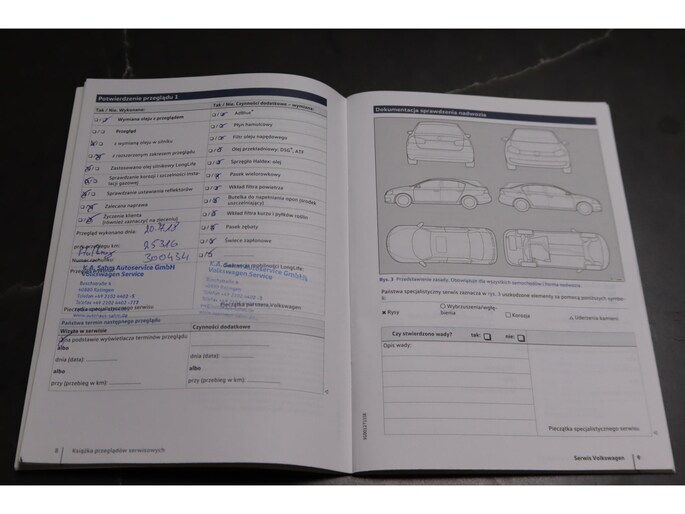 Potwierdzenie przeglądu 3
Tak / Nie. Wykonano:
Wymiana oleju z przeglądem
Przegląd
z wymianą oleju w silniku
z rozszerzonym zakresem przeglądu
Zastosowano olej silnikowy LongLife
Sprawdzanie korozji i szczelności instalacji gazowej
Sprawdzanie ustawienia reflektorów
Zalecana naprawa
Życzenie klienta
(również zaznaczyć na zleceniu)
Przegląd wykonano dnia:
przy przebiegu km:
25316
300434
K.A. Sahm Autoservice GmbH
Volkswagen Service
40885 Ratingen
Pieczątka specjalistycznego serwisu
Tak / Nie. Czynności dodatkowe – wymiana:
AdBlue®
Płyn hamulcowy
Filtr oleju napędowego
Olej przekładniowy: DSG®, A33
Sprzęgło Haldex: olej
Pasek wieloklinowy
Wkład filtra powietrza
Butelka do napełniania opon (środek uszczelniający)
Wkład filtra kurzu i pyłków roślin
Pasek zębaty
Świece zapłonowe
Gwarancja mobilności LongLife:
Pieczątka partnera Volkswagen
Państwa serwis następnego przeglądu
Wizyta w serwisie
Czynności dodatkowe
na podstawie wyświetlacza terminów przeglądu
albo
dnia (data):
dnia (data):
albo
albo
przy (przebieg w km):
przy (przebieg w km):
8
Książka przeglądów serwisowych
Dokumentacja sprawdzenia nadwozia
Rys. 3 Przedstawienie zasady. Obowiązuje dla wszystkich samochodów i form nadwozia.
Państwa specjalistyczny serwis zaznacza w rys. 3 uszkodzone elementy za pomocą poniższych symboli:
Rysy
Wybrzuszenia/wgłębienia
Korozja
Uderzenia kamieni
Czy stwierdzono wady?
tak:
nie:
Opis wady:
Pieczątka specjalistycznego serwisu
Serwis Volkswagen
9